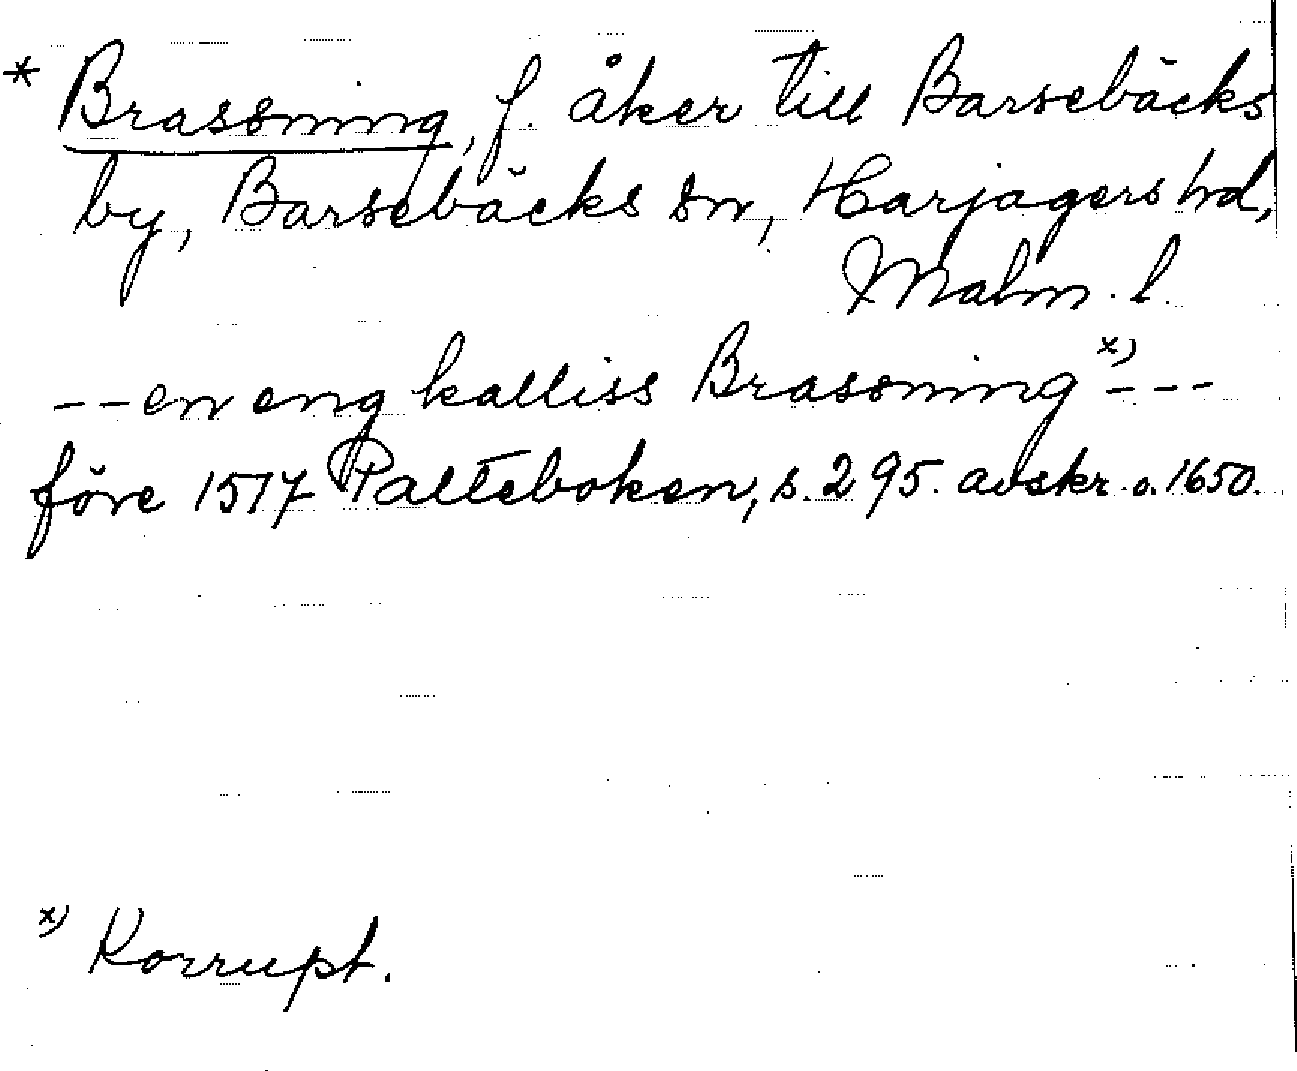 * Brassning, f. åker till Barsebäcks
by, Barsebäcks sn, Harjagers hd,
Malm. l.
-- en eng kalliss Brassning x) ---
före 1517 Palteboken, s. 295. avskr. o. 1650.
x) Korrupt.